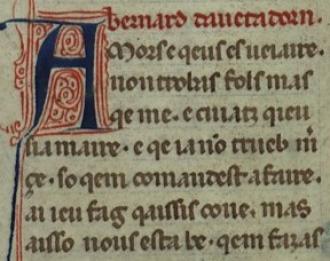 bernard dauetadorn.
AMors e qeus es ueiaire.
non trobatz fols mas
qe me. e cuiatz qieu
sia maire. e qe ia no trueb m
çe. so qem comandest a faire.
ai ieu fag qaissis coue. mas
aisso nous esta be. qem fazas